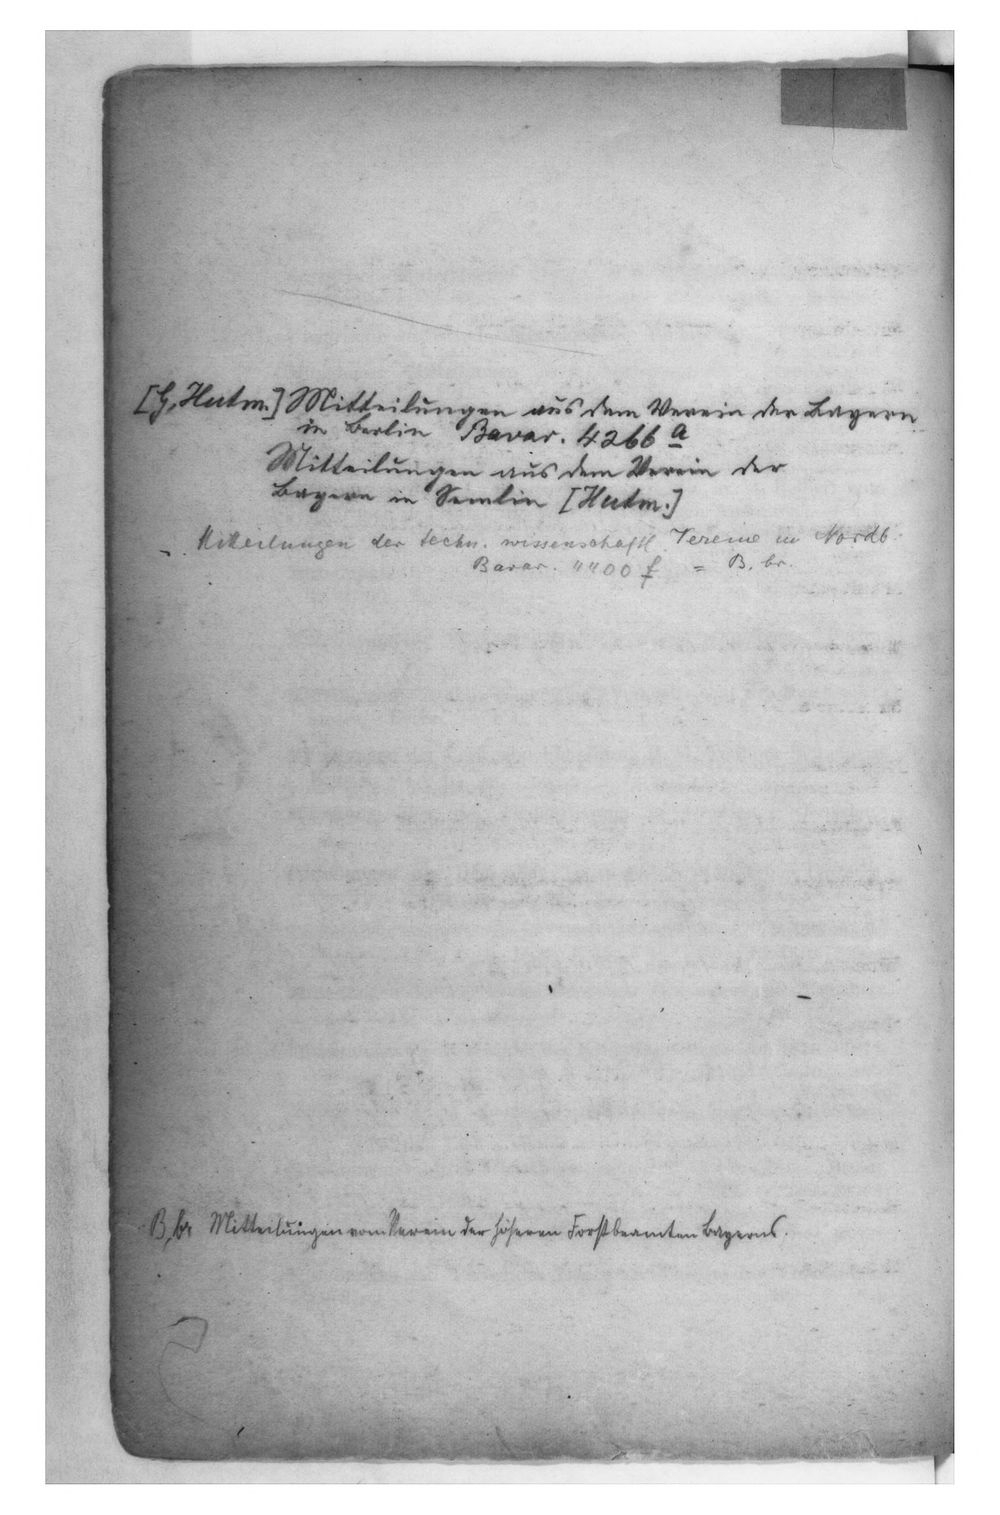 [G, Hutm.] Mitteilungen aus dem Verein der Bayern
in Berlin Bavar. 4266 a
Mitteilungen aus dem Verein der
Bayern in Berlin [Hutm.]
Mitteilungen der techn. wissenschaftl. Vereine in Nordb.
Bavar. 4400 f = B. br.
B, br Mitteilungen vom Verein der höheren Forstbeamten Bayerns.